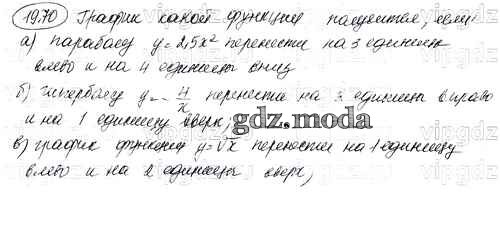 19.70 График какой функции получится, если
а) параболу y = 2,5x² перенести на 3 единицы
влево и на 4 единицы вниз
б) гиперболу y = -4/x перенести на 3 единицы вправо
и на 1 единицу вверх,
gdz.moda
в) график функции y=√x перенести на 1 единицу
влево и на 2 единицы вверх,